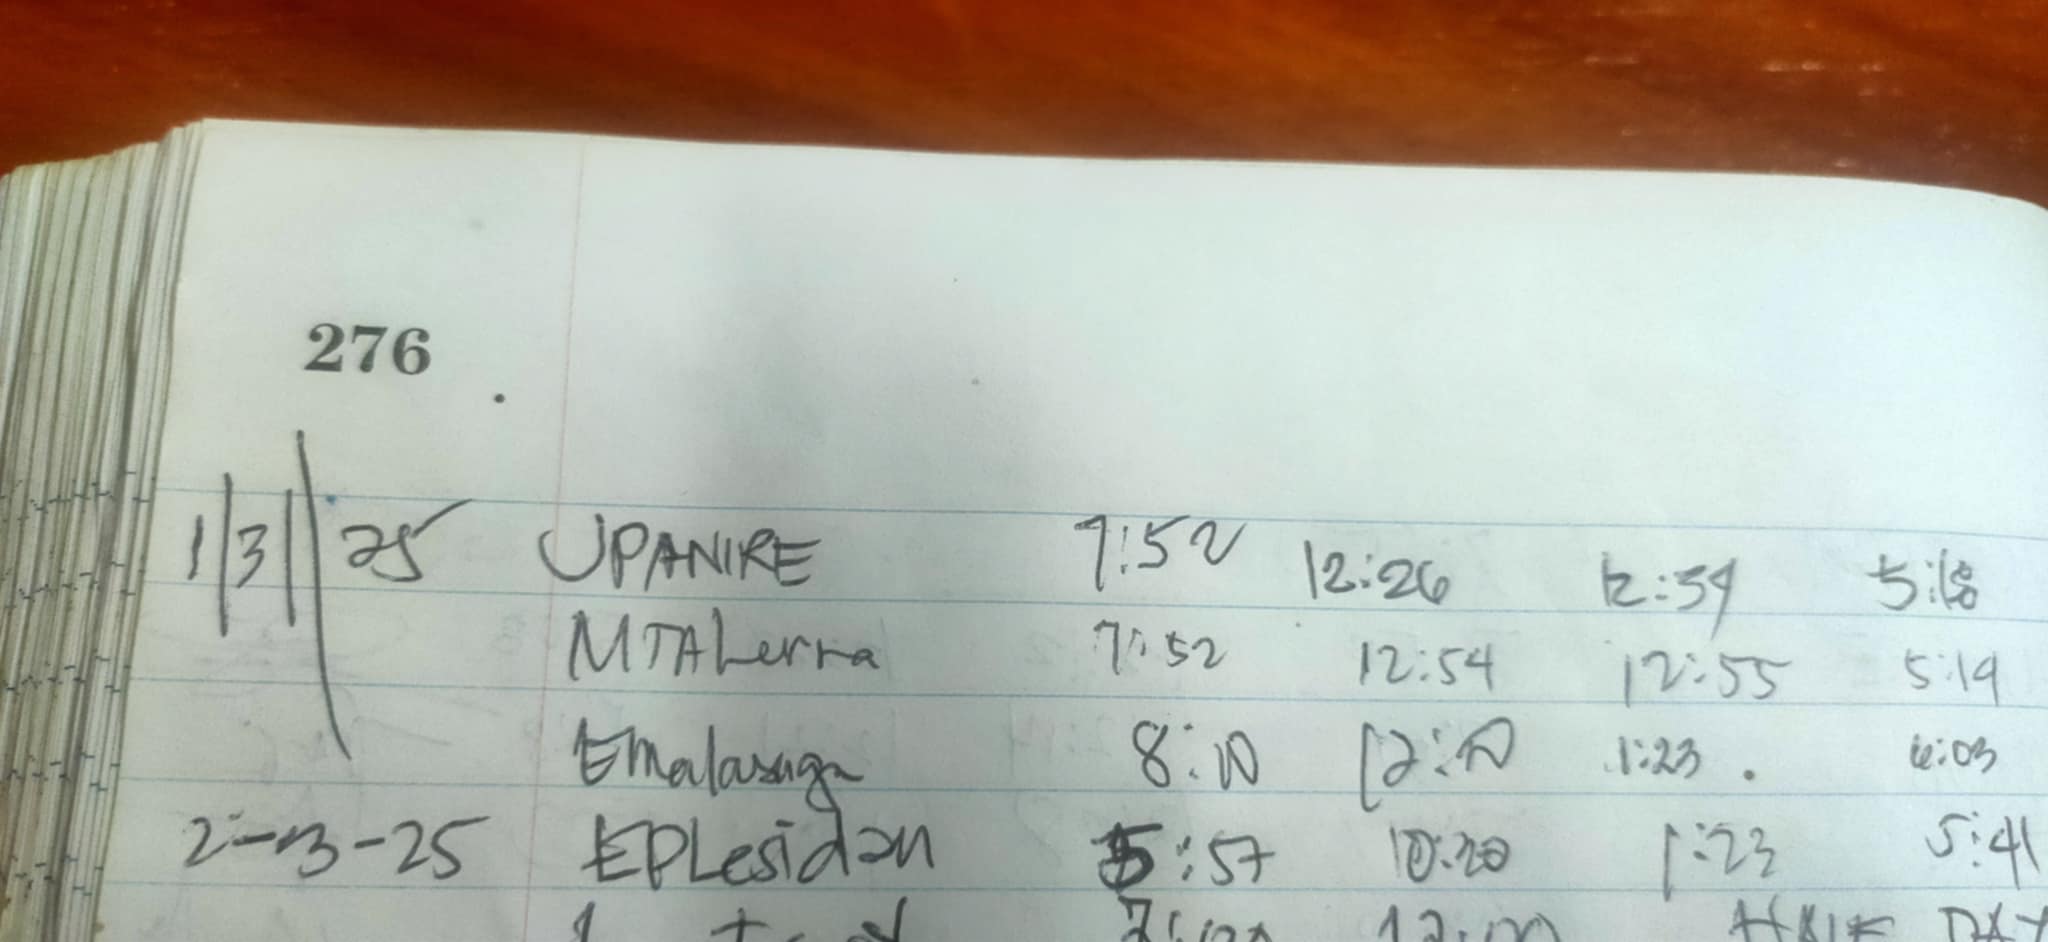 276
1/31/25 JPANIRE 7:52 12:26 12:39 5:18
MTALerra 7:52 12:54 12:55 5:19
Emalasuga 8:10 12:10 1:23 6:03
2-3-25 EPLesidan 5:57 10:20 1:23 5:41
12:00 HALF DAY